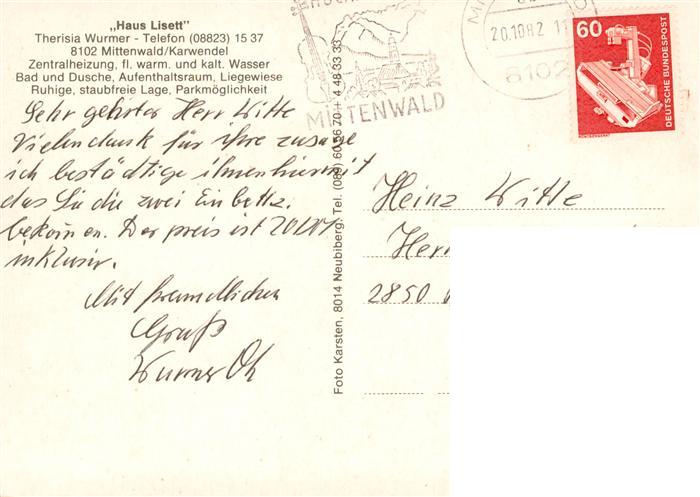 „Haus Lisett"
Therisia Wurmer - Telefon (08823) 15 37
8102 Mittenwald/Karwendel
Zentralheizung, fl. warm. und kalt. Wasser
Bad und Dusche, Aufenthaltsraum, Liegewiese
Ruhige, staubfreie Lage, Parkmöglichkeit
Sehr geehrter Herr Witte
Vielen dank für Ihre zusage
ich bestädtige ihnen hiermit
das Sie die zwei Einbettz.
bekommen. Der preis ist
inklusiv.
Mit freundlichen
Gruß
Wurmer
MITTENWALD
20.10.82
8102
60
DEUTSCHE BUNDESPOST
Foto Karsten, 8014 Neubiberg. Tel. (089) 60 26 70 + 4 48 53 33
Heinz Witte
2850